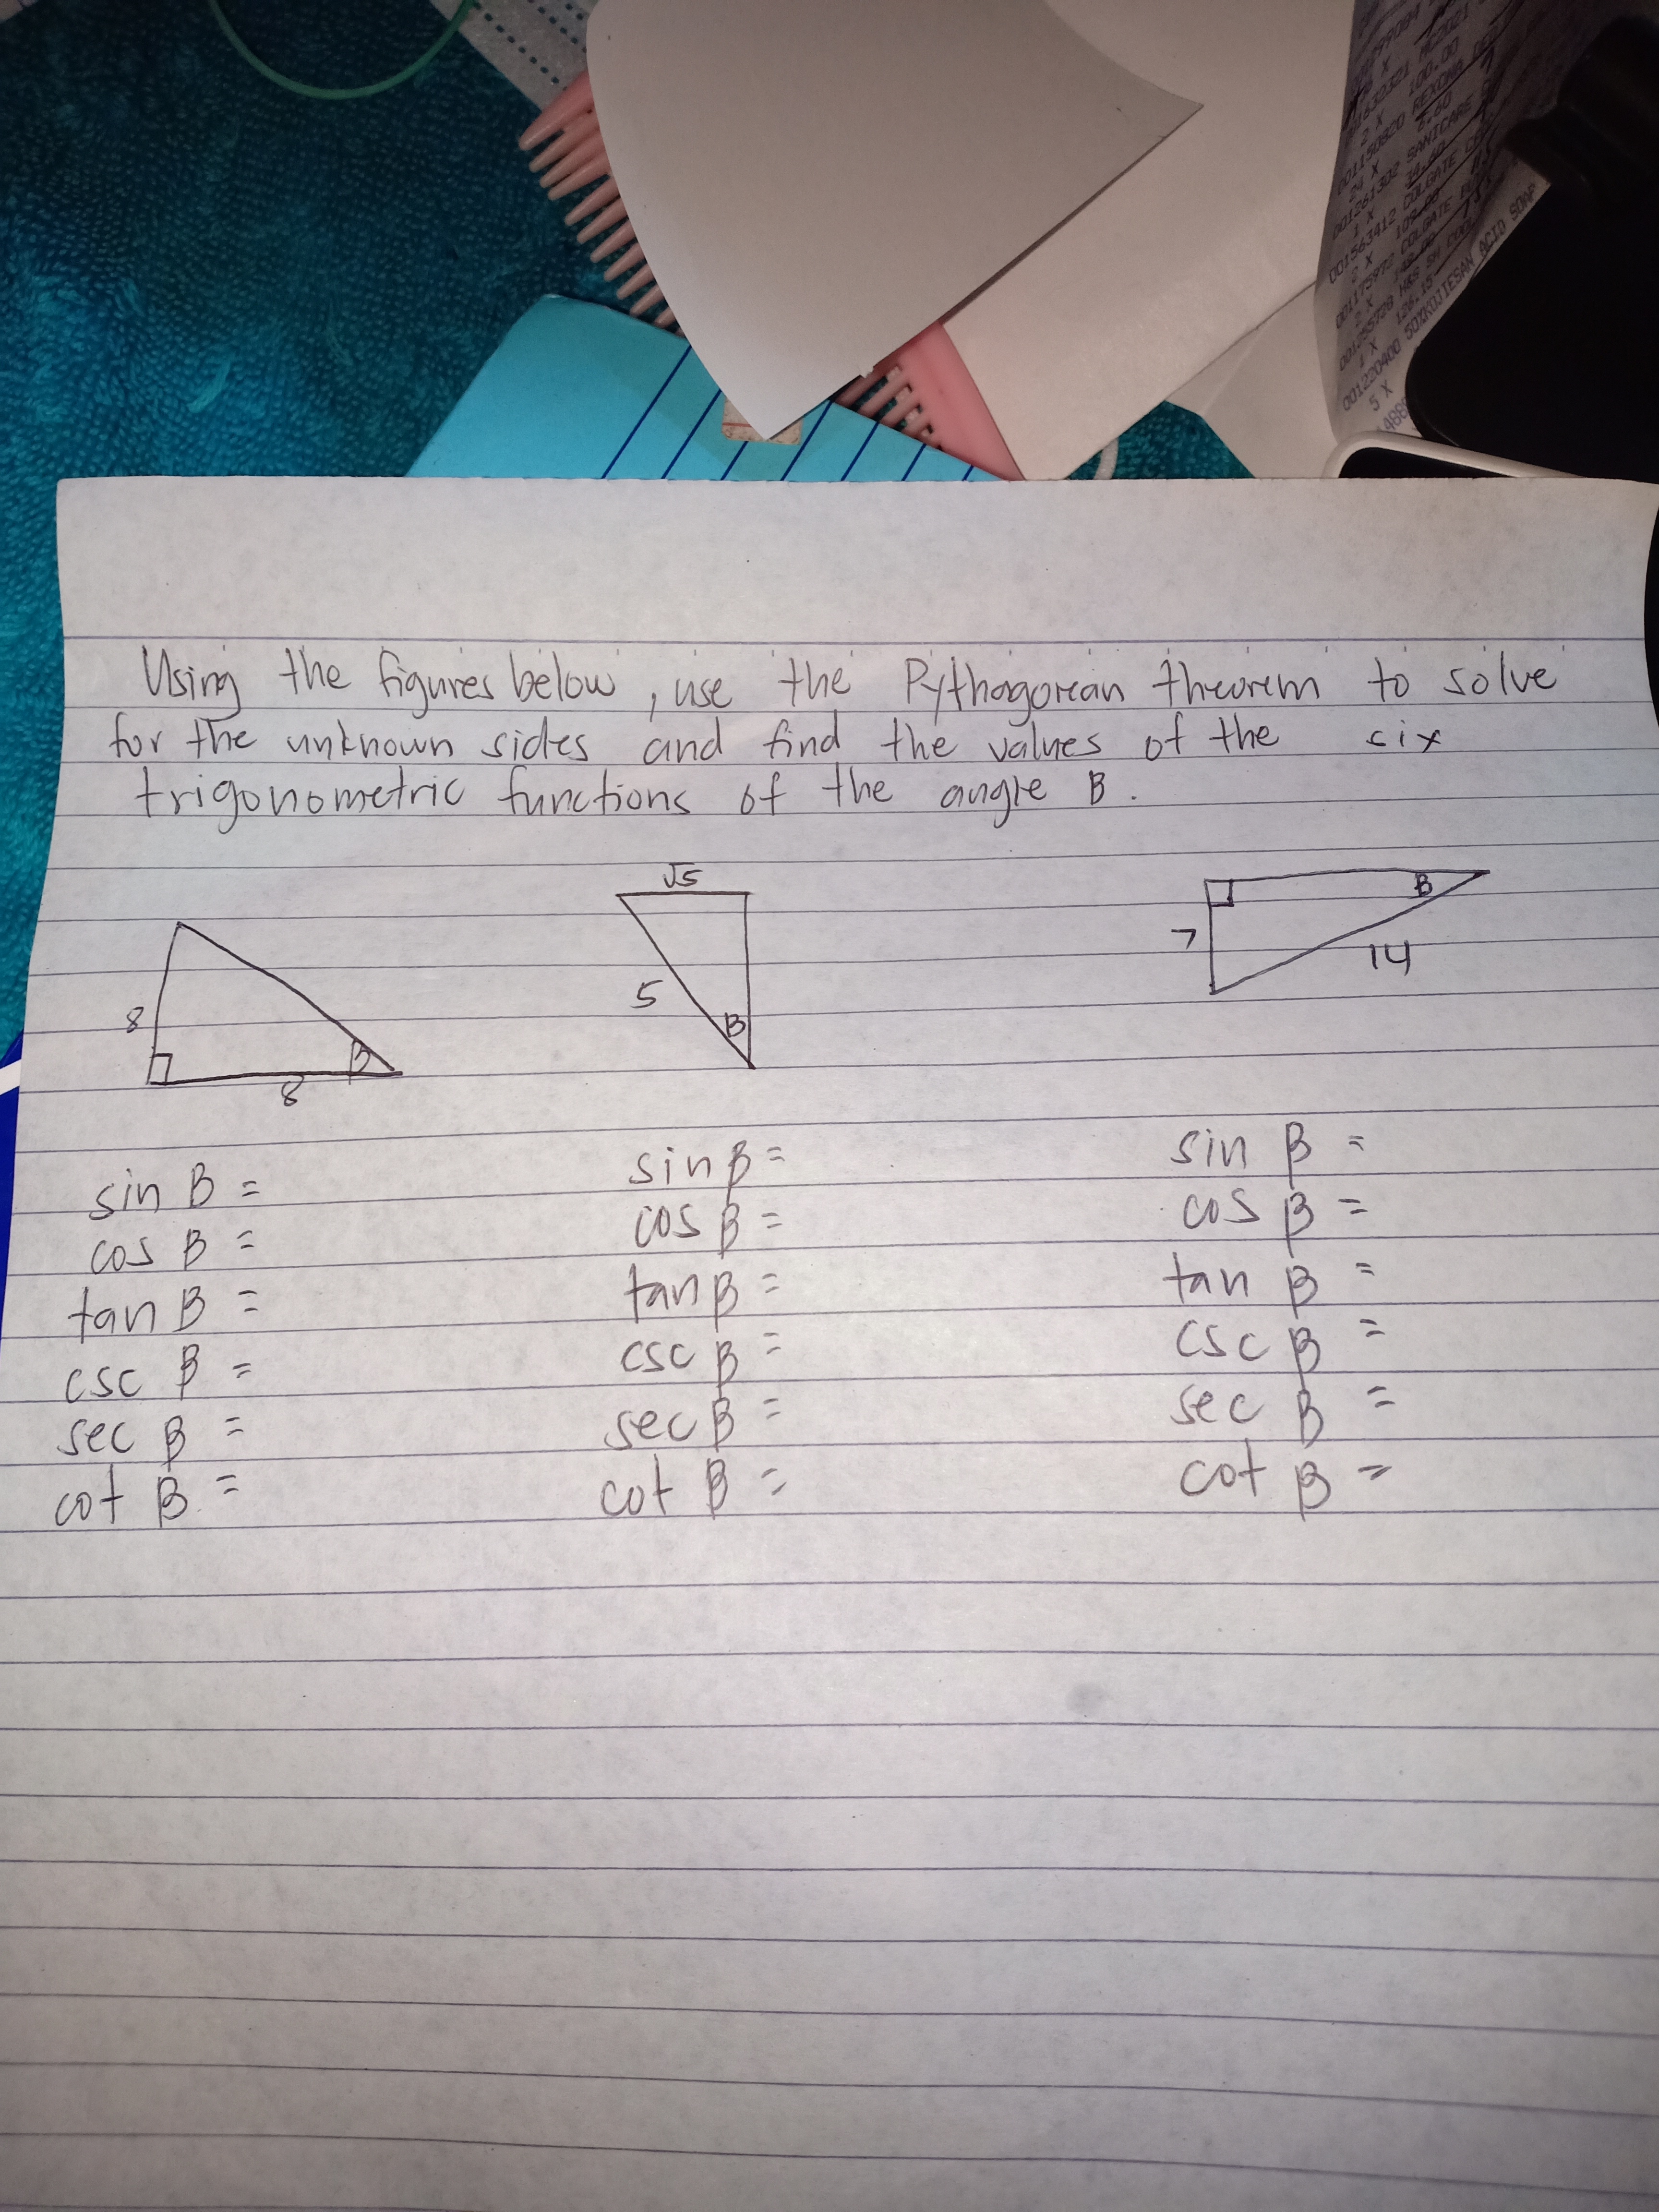 100.00
REXONA
SANICARE
COLGATE
COLGATE
001220400 SOXKOJIESAN ACID SOAP
5 X
Using the figures below, use the Pythagorean theorem to solve
for the unknown sides and find the values of the six
trigonometric functions of the angle B.
8
8
β
√5
5
B
7
B
14
sin B =
cos B =
tan B =
csc β =
sec β =
cot β =
sin β =
cos β =
tan β =
csc β =
sec β =
cot β =
sin β =
cos β =
tan β =
csc β =
sec β =
cot β =